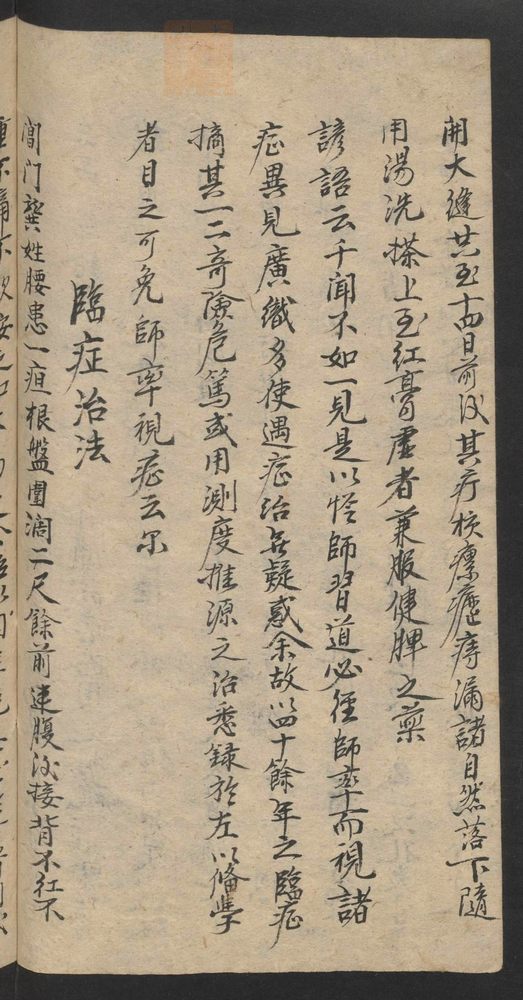 開大縫共至十四日前後其疔核瘰癧痔漏諸自然落下隨
用湯洗搽上玉紅膏虛者兼服健脾之藥
諺語云千聞不如一見是以從師習道必徑師率而視諸
症異見廣織多使遇症治無疑惑余故以四十餘年之臨症
摘其一二奇險危篤或用測度推源之治悉録於左以俻學
者目之可免師率視症云尔
臨症治法
閶门龔姓腰患一疽根盤圍濶二尺餘前連腹後接背不红不